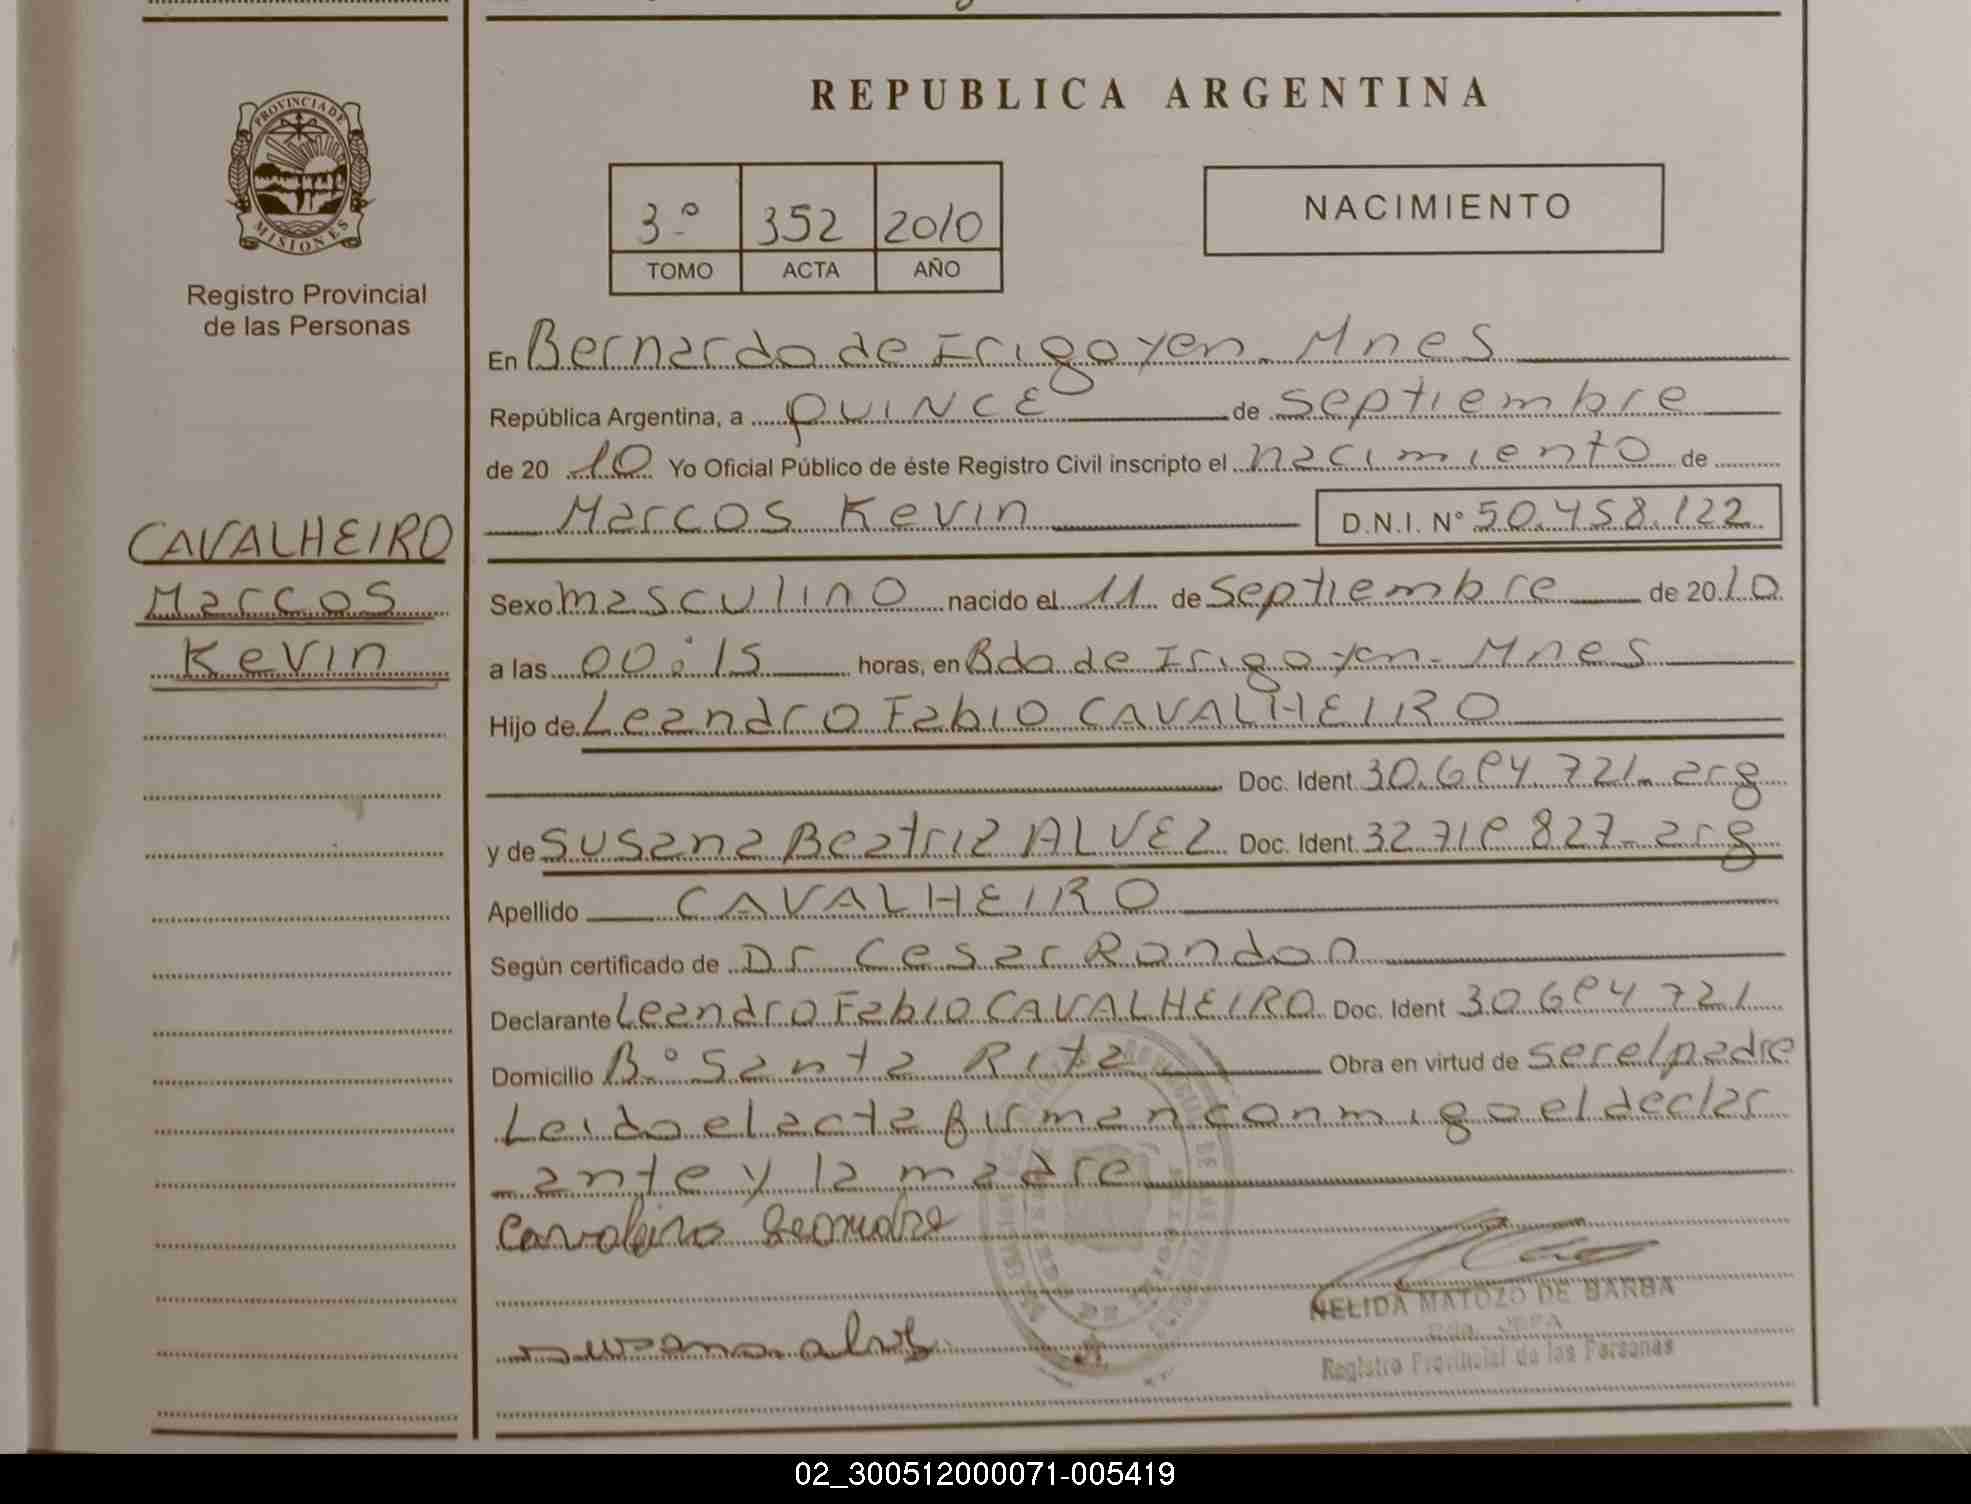 REPUBLICA ARGENTINA
PROVINCIA DE
MISIONES
Registro Provincial
de las Personas
3º 352 2010
TOMO ACTA AÑO
NACIMIENTO
En Bernardo de Irigoyen - Mnes
República Argentina, a QUINCE de septiembre
de 20 10 Yo Oficial Público de éste Registro Civil inscripto el nacimiento de
Marcos Kevin D.N.I. Nº 50.458.122
CAVALHEIRO
Marcos
Kevin
Sexo masculino nacido el 11 de septiembre de 2010
a las 00:15 horas, en Bdo de Irigoyen - Mnes
Hijo de Leandro Fabio CAVALHEIRO
Doc. Ident. 30.694.721- arg
y de Susana Beatriz ALVEZ Doc. Ident. 32.719.827- arg
Apellido CAVALHEIRO
Según certificado de Dr Cesar Rondon
Declarante Leandro Fabio CAVALHEIRO Doc. Ident 30694721
Domicilio Bº Santa Rita Obra en virtud de ser el padre
Leido el acta firman conmigo el declar
ante y la madre
NELIDA MATOZO DE BARBA
JEFA
Registro Provincial de las Personas
02_300512000071-005419